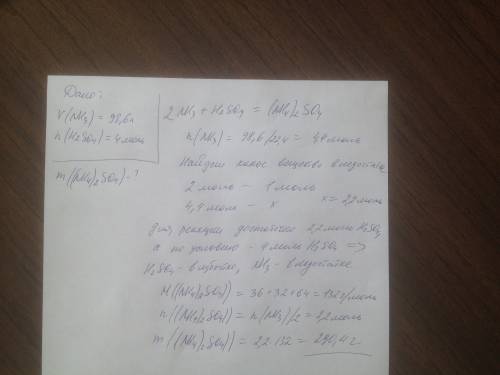 Дано:
V(NH3) = 98,6л
n(H2SO4) = 4 моль
m((NH4)2SO4) - ?
2NH3 + H2SO4 = (NH4)2SO4
n(NH3) = 98,6/22,4 = 4,4 моль
Найдем какое вещество в недостатке
2 моль - 1 моль
4,4 моль - x x = 2,2 моль
для реакции достаточно 2,2 моль H2SO4
а по условию - 4 моль H2SO4 =>
H2SO4 - в избытке, NH3 - в недостатке
M((NH4)2SO4) = 36+32+64 = 132 г/моль
n((NH4)2SO4) = n(NH3)/2 = 2,2 моль
m((NH4)2SO4) = 2,2·132 = 290,4 г